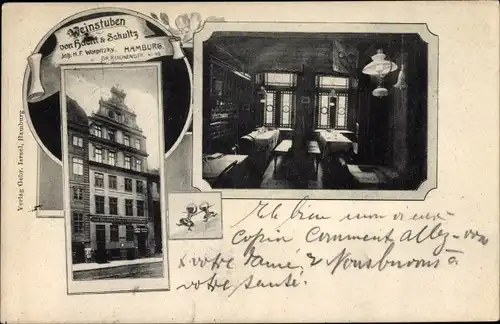 Weinstuben
von Hacht & Schultz
Inh. H. F. Woepitzky, HAMBURG,
GR. BÄCKERSTR.
Verlag Gebr. Israel, Hamburg
Ich bin
copia Comment allez-vous
votre santé, & Nous buvons à
votre santé.